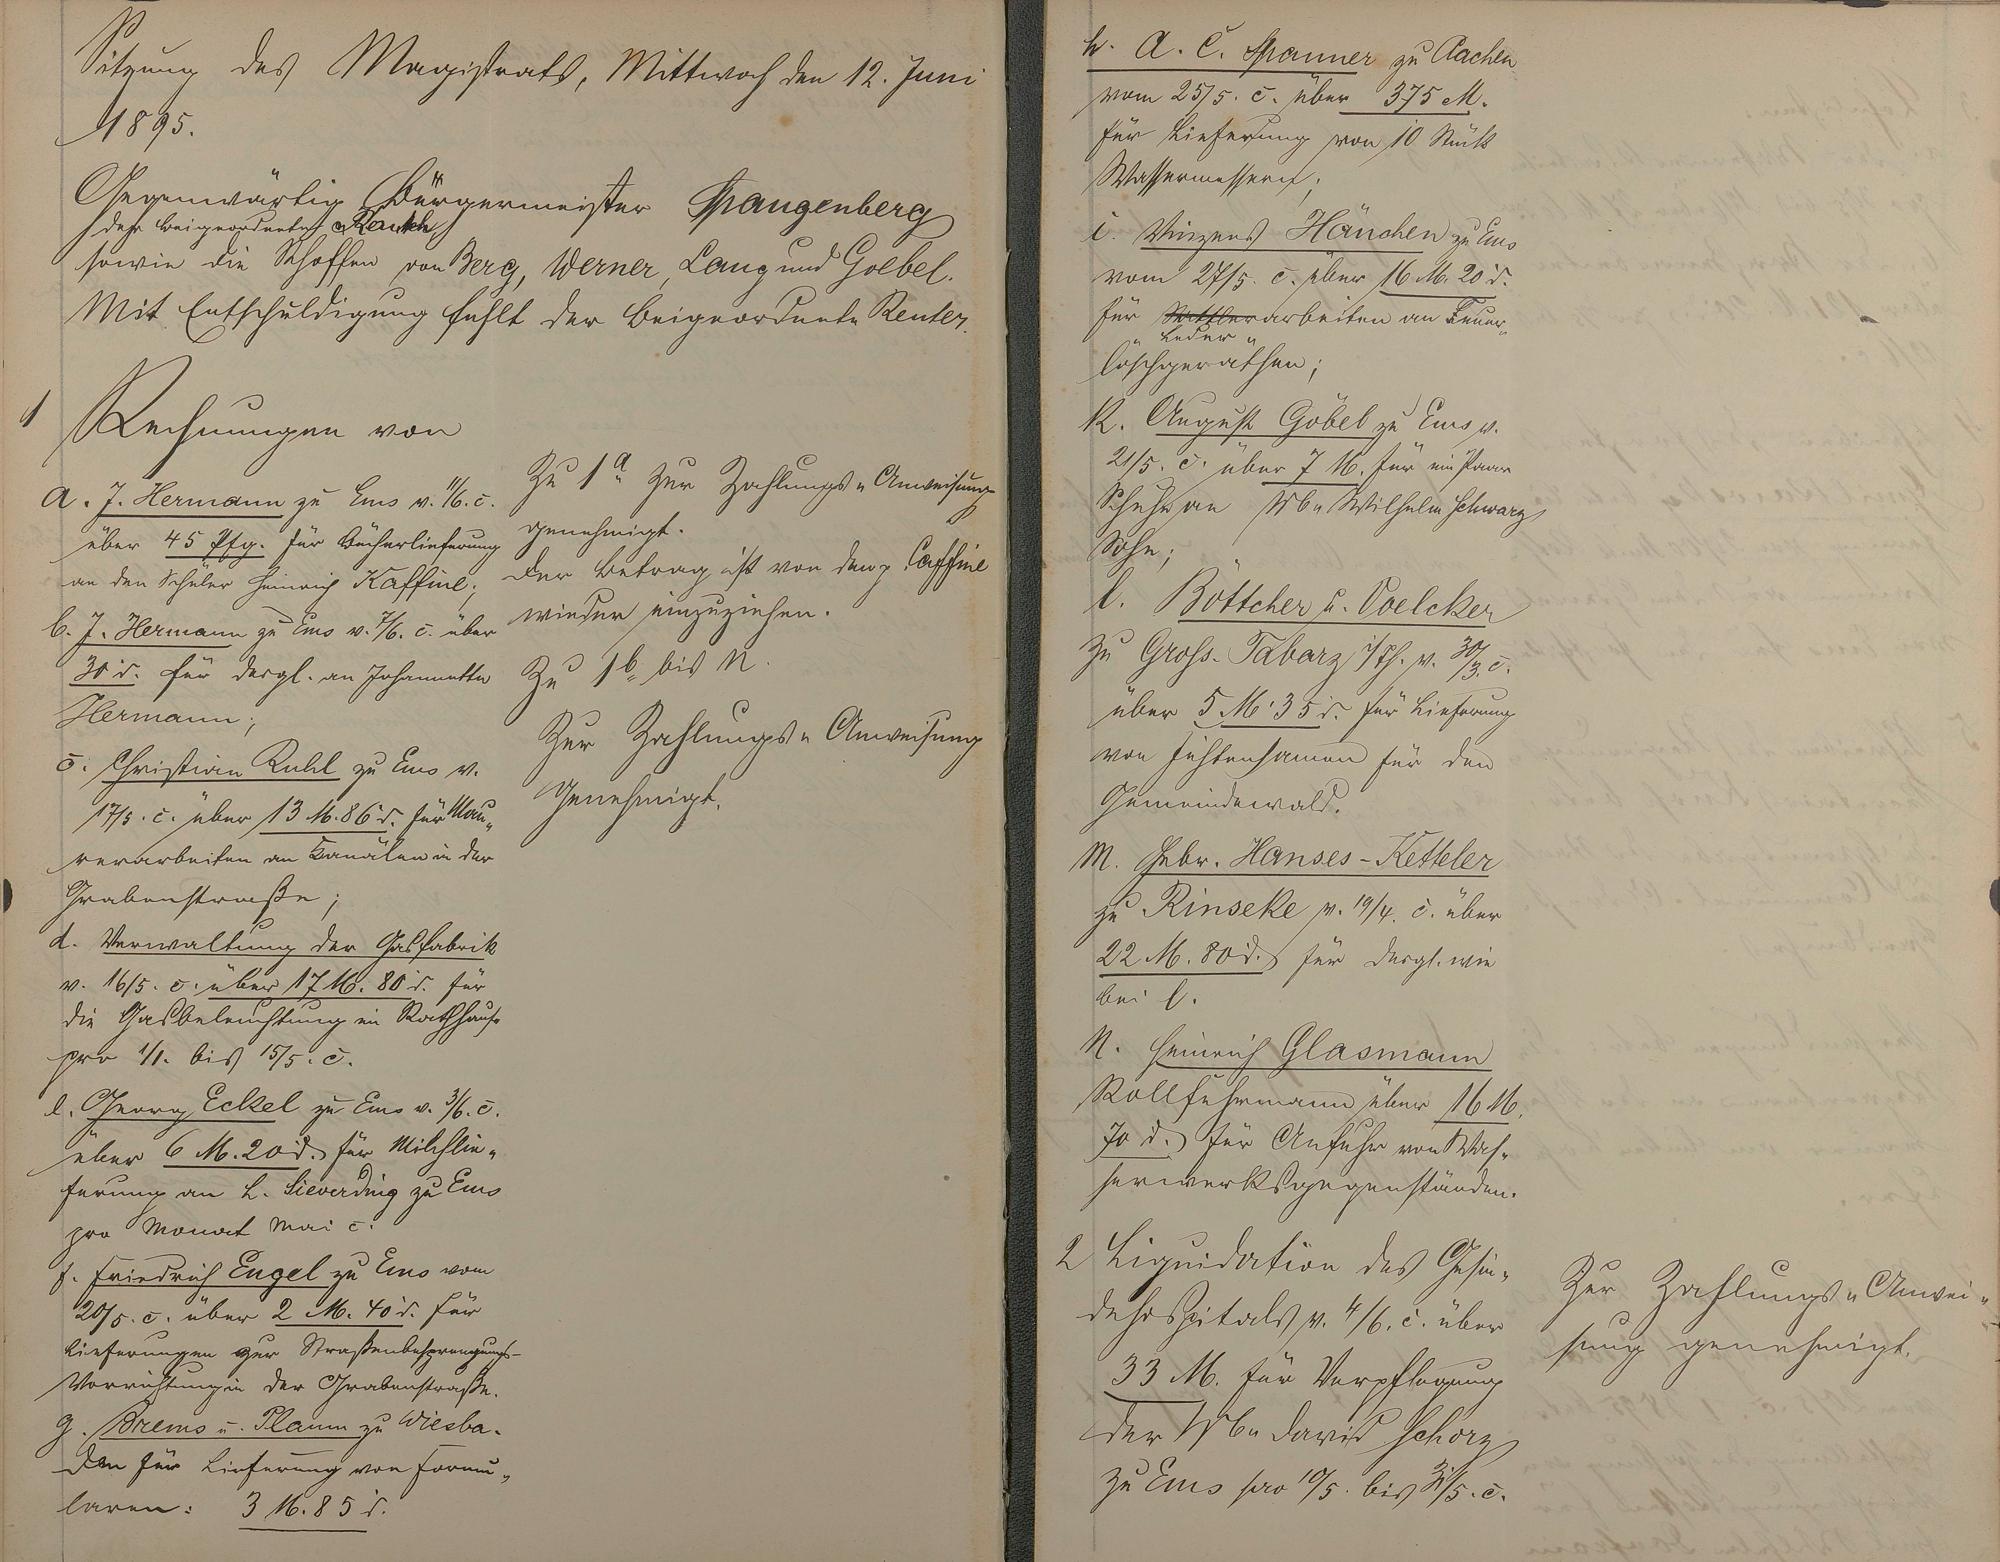 Sitzung des Magistrats, Mittwoch den 12. Juni
1895.
Gegenwärtig Bürgermeister Spangenberg
der Beigeordnete Rauch,
sowie die Schöffen von Berg, Werner, Lang und Goebel.
Mit Entschuldigung fehlt der Beigeordnete Reuter.
1 Rechnungen von
a. J. Hermann zu Ems v. 11/6. c.
über 45 Pfg. für Bücherlieferung
an den Schüler Heinrich Kaffine;
b. J. Hermann zu Ems v. 7/6. c. über
30 d. für desgl. an Johannette
Hermann;
c. Christian Ruhl zu Ems v.
17/5. c. über 13 M. 86 d. für Mau-
rerarbeiten an Kanälen in der
Grabenstraße;
d. Verwaltung der Gasfabrik
v. 16/5. c. über 17 M. 80 d. für
die Gasbeleuchtung im Rathhause
pro 1/1. bis 15/5. c.
e. Georg Eckel zu Ems v. 3/6. c.
über 6 M. 20 d. für Milchlie-
ferung an L. Sieverding zu Ems
pro Monat Mai c.
f. Friedrich Engel zu Ems vom
20/5. c. über 2 M. 40 d. für
Lieferungen zur Straßenbesprengungs-
Vorrichtung in der Grabenstraße.
g. Brems u. Plaum zu Wiesba-
den für Lieferung von Formu-
laren: 3 M. 85 d.
Zu 1a zur Zahlungs-Anweisung
genehmigt.
Der Betrag ist von dem p. Caffine
wieder einzuziehen.
Zu 1b bis n.
Zur Zahlungs-Anweisung
Genehmigt.
h. A. C. Spanner zu Aachen
vom 25/5. c. über 375 M.
für Lieferung von 10 Stück
Wassermessern;
i. Vinzens Hänchen zu Ems
vom 27/5. c. über 16 M. 20 d.
für Sattlerarbeiten an Feuer-
Leder-
löschgeräthen;
k. August Göbel zu Ems v.
21/5. c. über 7 M. für ein Paar
Schuhe an Wb. Wilhelm Schwarz
Sohn;
l. Böttcher u. Voelcker
zu Gross-Tabarz i/Th. v. 30/3. c.
über 5 M. 35 d. für Lieferung
von Fichtensamen für den
Gemeindewald.
m. Gebr. Hanses-Ketteler
zu Rinseke v. 19/4. c. über
22 M. 80 d. für desgl. wie
bei l.
n. Heinrich Glasmann
Rollfuhrmann über 16 M.
70 d. für Anfuhr von Was-
serwerksgegenständen.
2 Liquidation des Gesin-
dehospitals v. 4/6. c. über
33 M. für Verpflegung
der Wb. David Schorz
zu Ems pro 10/5. bis 31/5. c.
Zur Zahlungs-Anwei-
sung genehmigt.